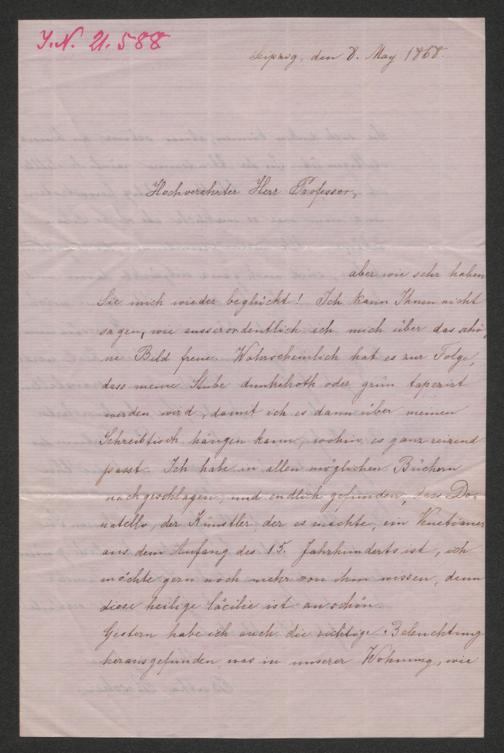 J.N. 21.588
Leipzig, den 8. May 1868.
Hochverehrter Herr Professor,
aber wie sehr haben
Sie mich wieder beglückt! Ich kann Ihnen nicht
sagen, wie ausserordentlich ich mich über das schö-
ne Bild freue. Wahrscheinlich hat es zur Folge,
dass meine Stube dunkelroth oder grün tapeziert
werden wird, damit ich es dann über meinen
Schreibtisch hängen kann, wohin es ganz reizend
passt. Ich habe in allen möglichen Büchern
nachgeschlagen, und endlich gefunden, dass Do-
natello, der Künstler, der es machte, ein Venetianer
aus dem Anfang des 15. Jahrhunderts ist, ich
möchte gern noch mehr von ihm wissen, denn
diese heilige Cäcilie ist zu schön.
Gestern habe ich auch die richtige Beleuchtung
herausgefunden, was in unserer Wohnung, wie